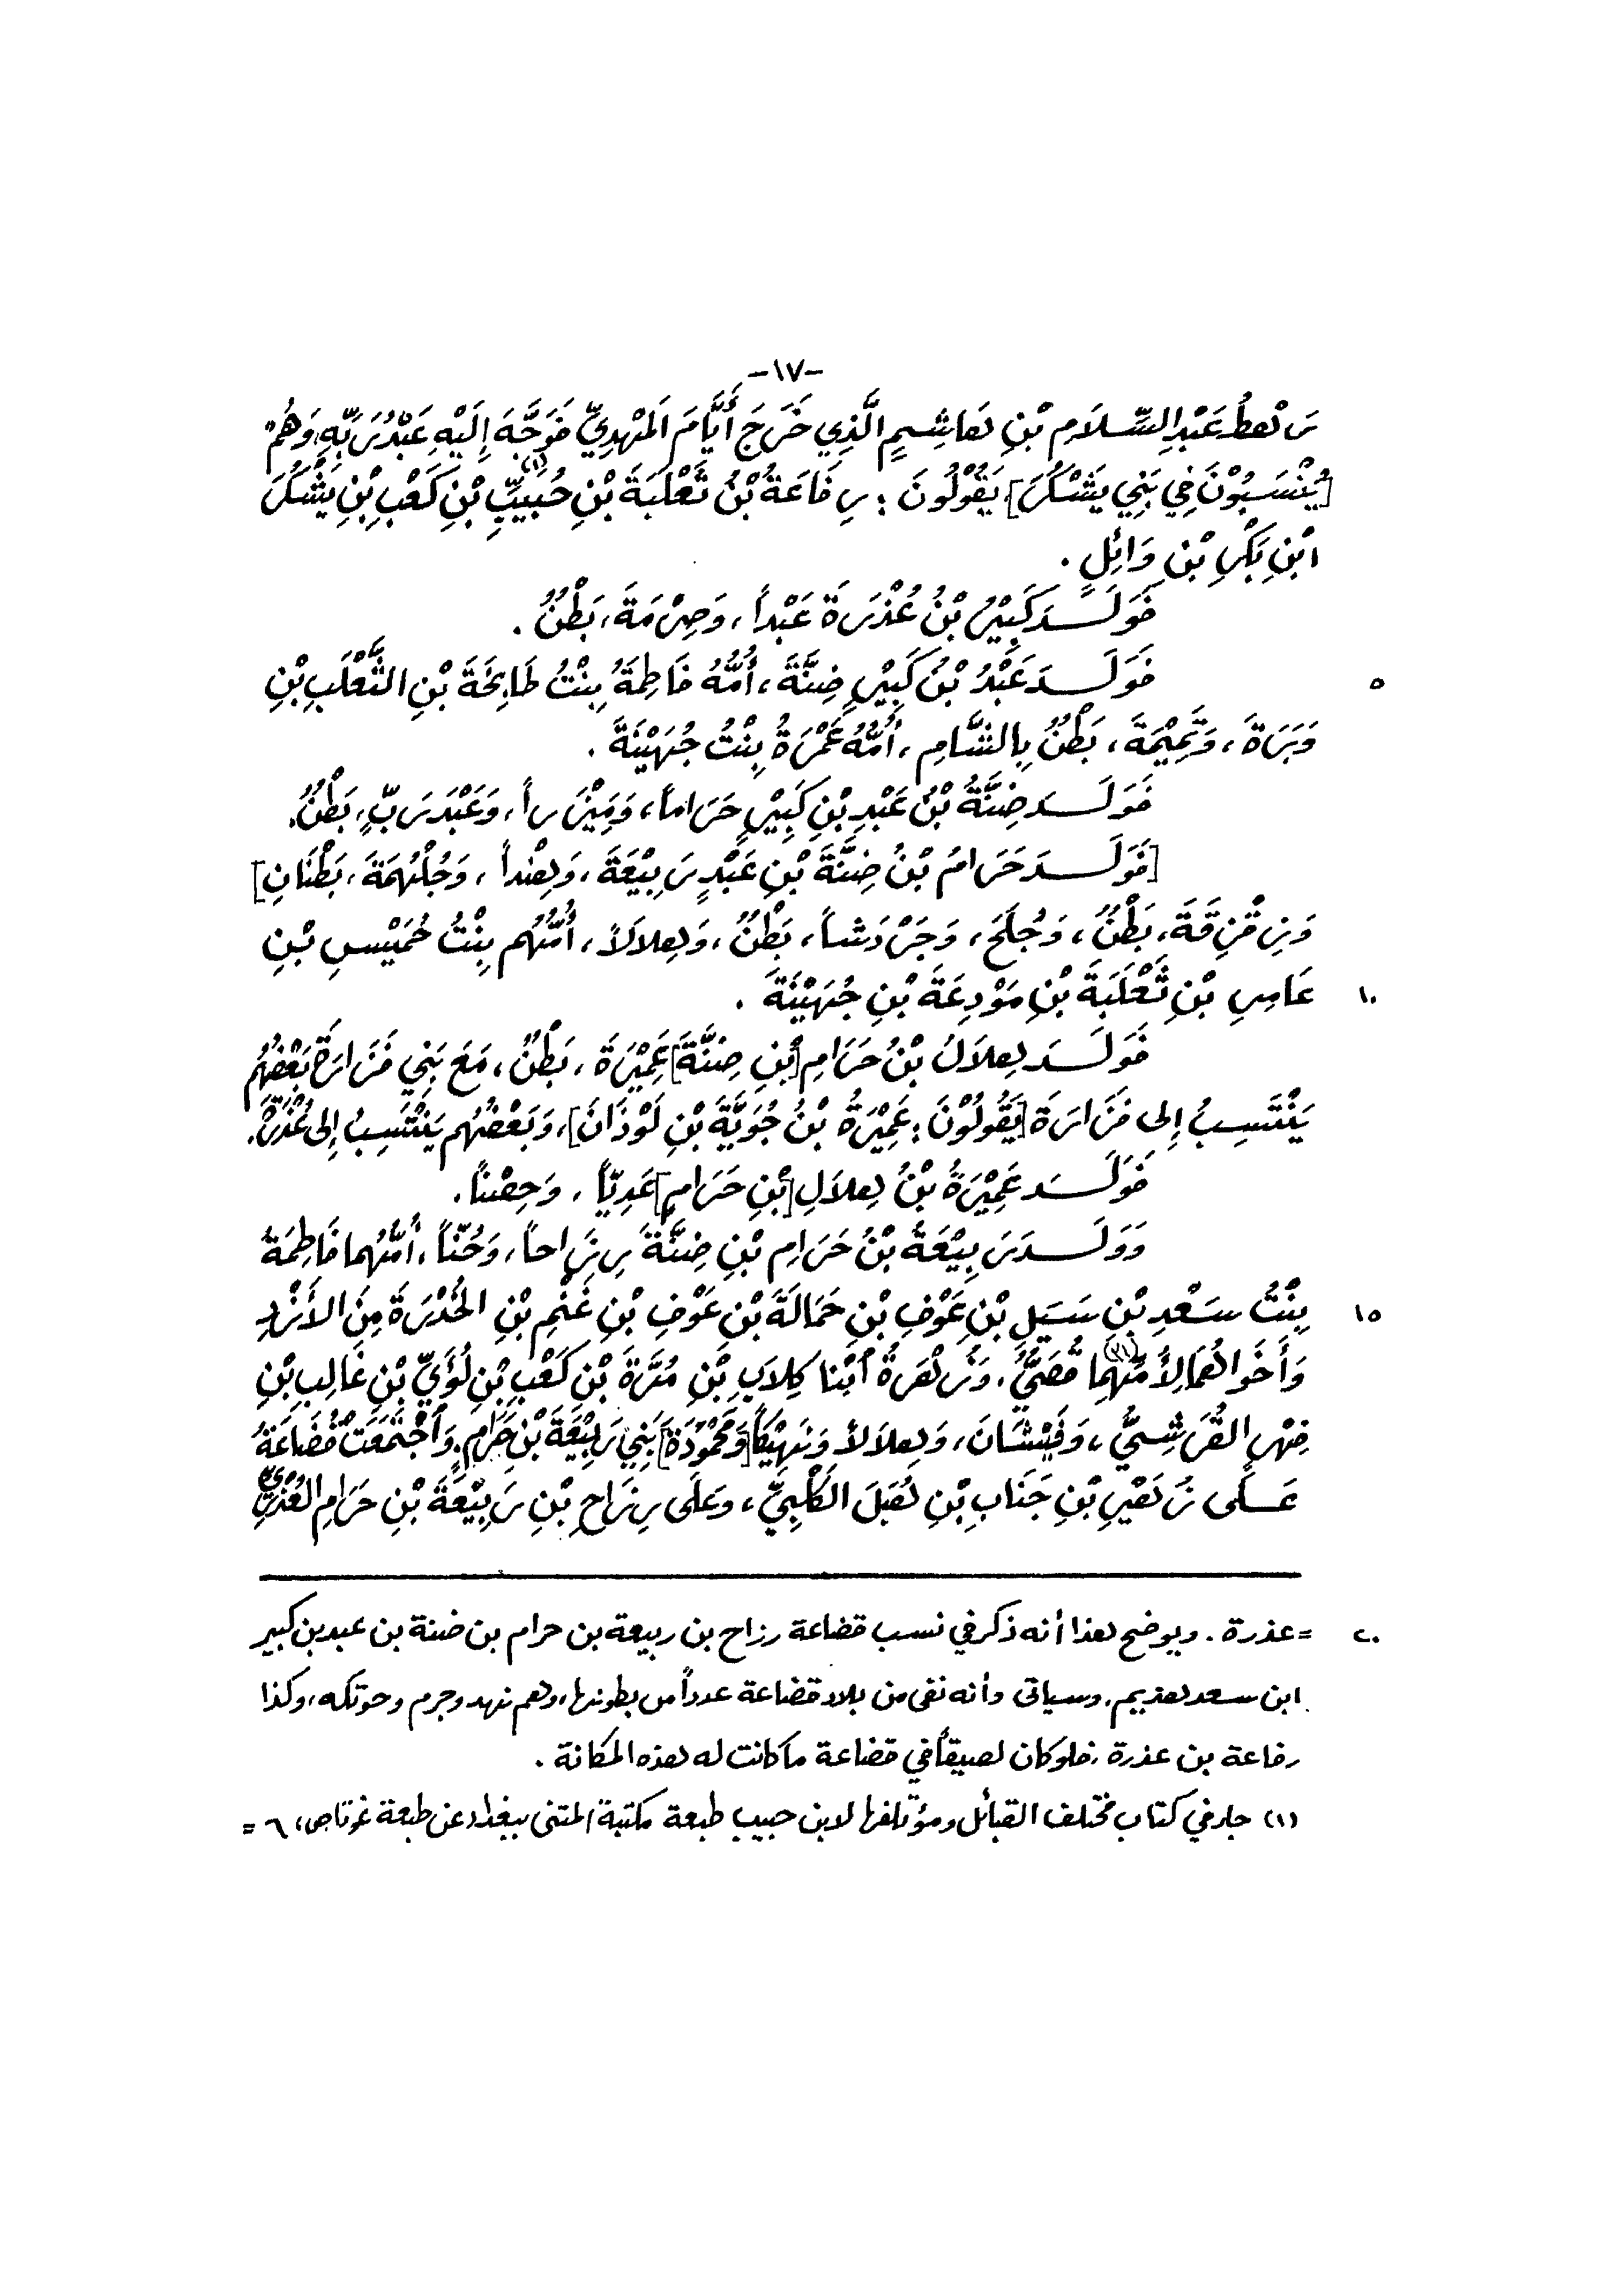 -١٧-
رَهْطُ عَبْدِ السَّلَامِ بْنِ هَاشِمٍ الَّذِي خَرَجَ أَيَّامَ المَهْدِيِّ فَوَجَّهَ إِلَيْهِ عَبْدُ رَبِّهِ، وَهُمْ
[يُنْسَبُوْنَ فِي بَنِي يَشْكُرَ] يَقُوْلُونَ : رِفَاعَةُ بْنُ ثَعْلَبَةَ بْنِ حُبَيِّبِ (١) بْنِ كَعْبِ بْنِ يَشْكُرَ
ابْنِ بَكْرِ بْنِ وَائِلٍ .
فَوَلَـدَ كَبِيْرُ بْنُ عُذْرَةَ عَبْداً، وَصِرْمَةَ، بَطْنٌ .
٥ فَوَلَـدَ عَبْدُ بْنُ كَبِيْرٍ ضِنَّةَ، أُمُّهُ فَاطِمَةُ بِنْتُ طَابِخَةَ بْنِ الثَّعْلَبِ بْنِ
وَبَرَةَ، وَتَمِيْمَةَ، بَطْنٌ بِالشَّامِ، أُمُّهُ عَمْرَةُ بِنْتُ جُهَيْنَةَ .
فَوَلَـدَ ضِنَّةُ بْنُ عَبْدِ بْنِ كَبِيْرٍ حَرَاماً، وَمِيْزَراً، وَعَبْدَ رَبٍّ، بَطْنٌ.
[فَوَلَـدَ حَرَامُ بْنُ ضِنَّةَ بْنِ عَبْدٍ رَبِيْعَةَ، وَهِنْداً، وَجُلْهُمَةَ، بَطْنَانِ]
وَزِقْزِقَةَ، بَطْنٌ، وَجُلَحَ، وَجَرْدَشاً، بَطْنٌ، وَهِلَالاً، أُمُّهُم بِنْتُ خُمَيْسِ بْنِ
١٠ عَامِرِ بْنِ ثَعْلَبَةَ بْنِ مَوْدِعَةَ بْنِ جُهَيْنَةَ .
فَوَلَـدَ هِلَالُ بْنُ حَرَامِ [بْنِ ضِنَّةَ] عَمِيْرَةَ، بَطْنٌ، مَعَ بَنِي فَزَارَةَ بَعْضُهُم
يَنْتَسِبُ إِلى فَزَارَةَ [يَقُوْلُوْنَ : عَمِيْرَةُ بْنُ جُوَيَّةَ بْنِ لَوْذَانَ]، وَبَعْضُهُم يَنْتَسِبُ إِلى عُذْرَةَ.
فَوَلَـدَ عَمِيْرَةُ بْنُ هِلَالِ [بْنِ حَرَامٍ] عَدِيّاً، وَحِصْناً.
وَوَلَـدَ رَبِيْعَةُ بْنُ حَرَامِ بْنِ ضِنَّةَ رِزَاحاً، وَحُنّاً، أُمُّهُما فَاطِمَةُ
١٥ بِنْتُ سَعْدِ بْنِ سَيَلِ بْنِ عَوْفِ بْنِ حَمَالَةَ بْنِ عَوْفِ بْنِ غَنْمِ بْنِ الخُدْرَةَ مِنَ الأَزْدِ
وَأَخَوَاهُمَا لِأُمِّهِمَا (٢) قُصَيٌّ، وَزُهْرَةُ ابْنَا كِلَابِ بْنِ مُرَّةَ بْنِ كَعْبِ بْنِ لُؤَيِّ بْنِ غَالِبِ بْنِ
فِهْرٍ القُرَشِيُّ، وَفَيْشَانَ، وَهِلَالاً وَنَهِيْكاً [وَمَحْمُوْدَةَ] بَنِي رَبِيْعَةَ بْنِ حَرَامٍ. وَاجْتَمَعَتْ قُضَاعَةُ
عَـلَى زُهَيْرِ بْنِ جَنَابِ بْنِ هُبَلَ الكَلْبِيِّ، وَعَلَى رِزَاحِ بْنِ رَبِيْعَةَ بْنِ حَرَامِ العُذْرِيِّ
٢٠ = عذرة . ويوضح هذا أنه ذكر في نسب قضاعة رزاح بن ربيعة بن حرام بن ضنة بن عبد بن كبير
ابن سعد هذيم، وسيأتي وأنه نفى من بلاد قضاعة عدداً من بطونها، وهم نهد وجرم وحوتكه، وكذا
رفاعة بن عذرة، فلو كان لصيقاً في قضاعة ما كانت له هذه المكانة .
(١) جاء في كتاب مختلف القبائل ومؤتلفها لابن حبيب طبعة مكتبة المثنى ببغداد عن طبعة غوتا ص، ٦ =